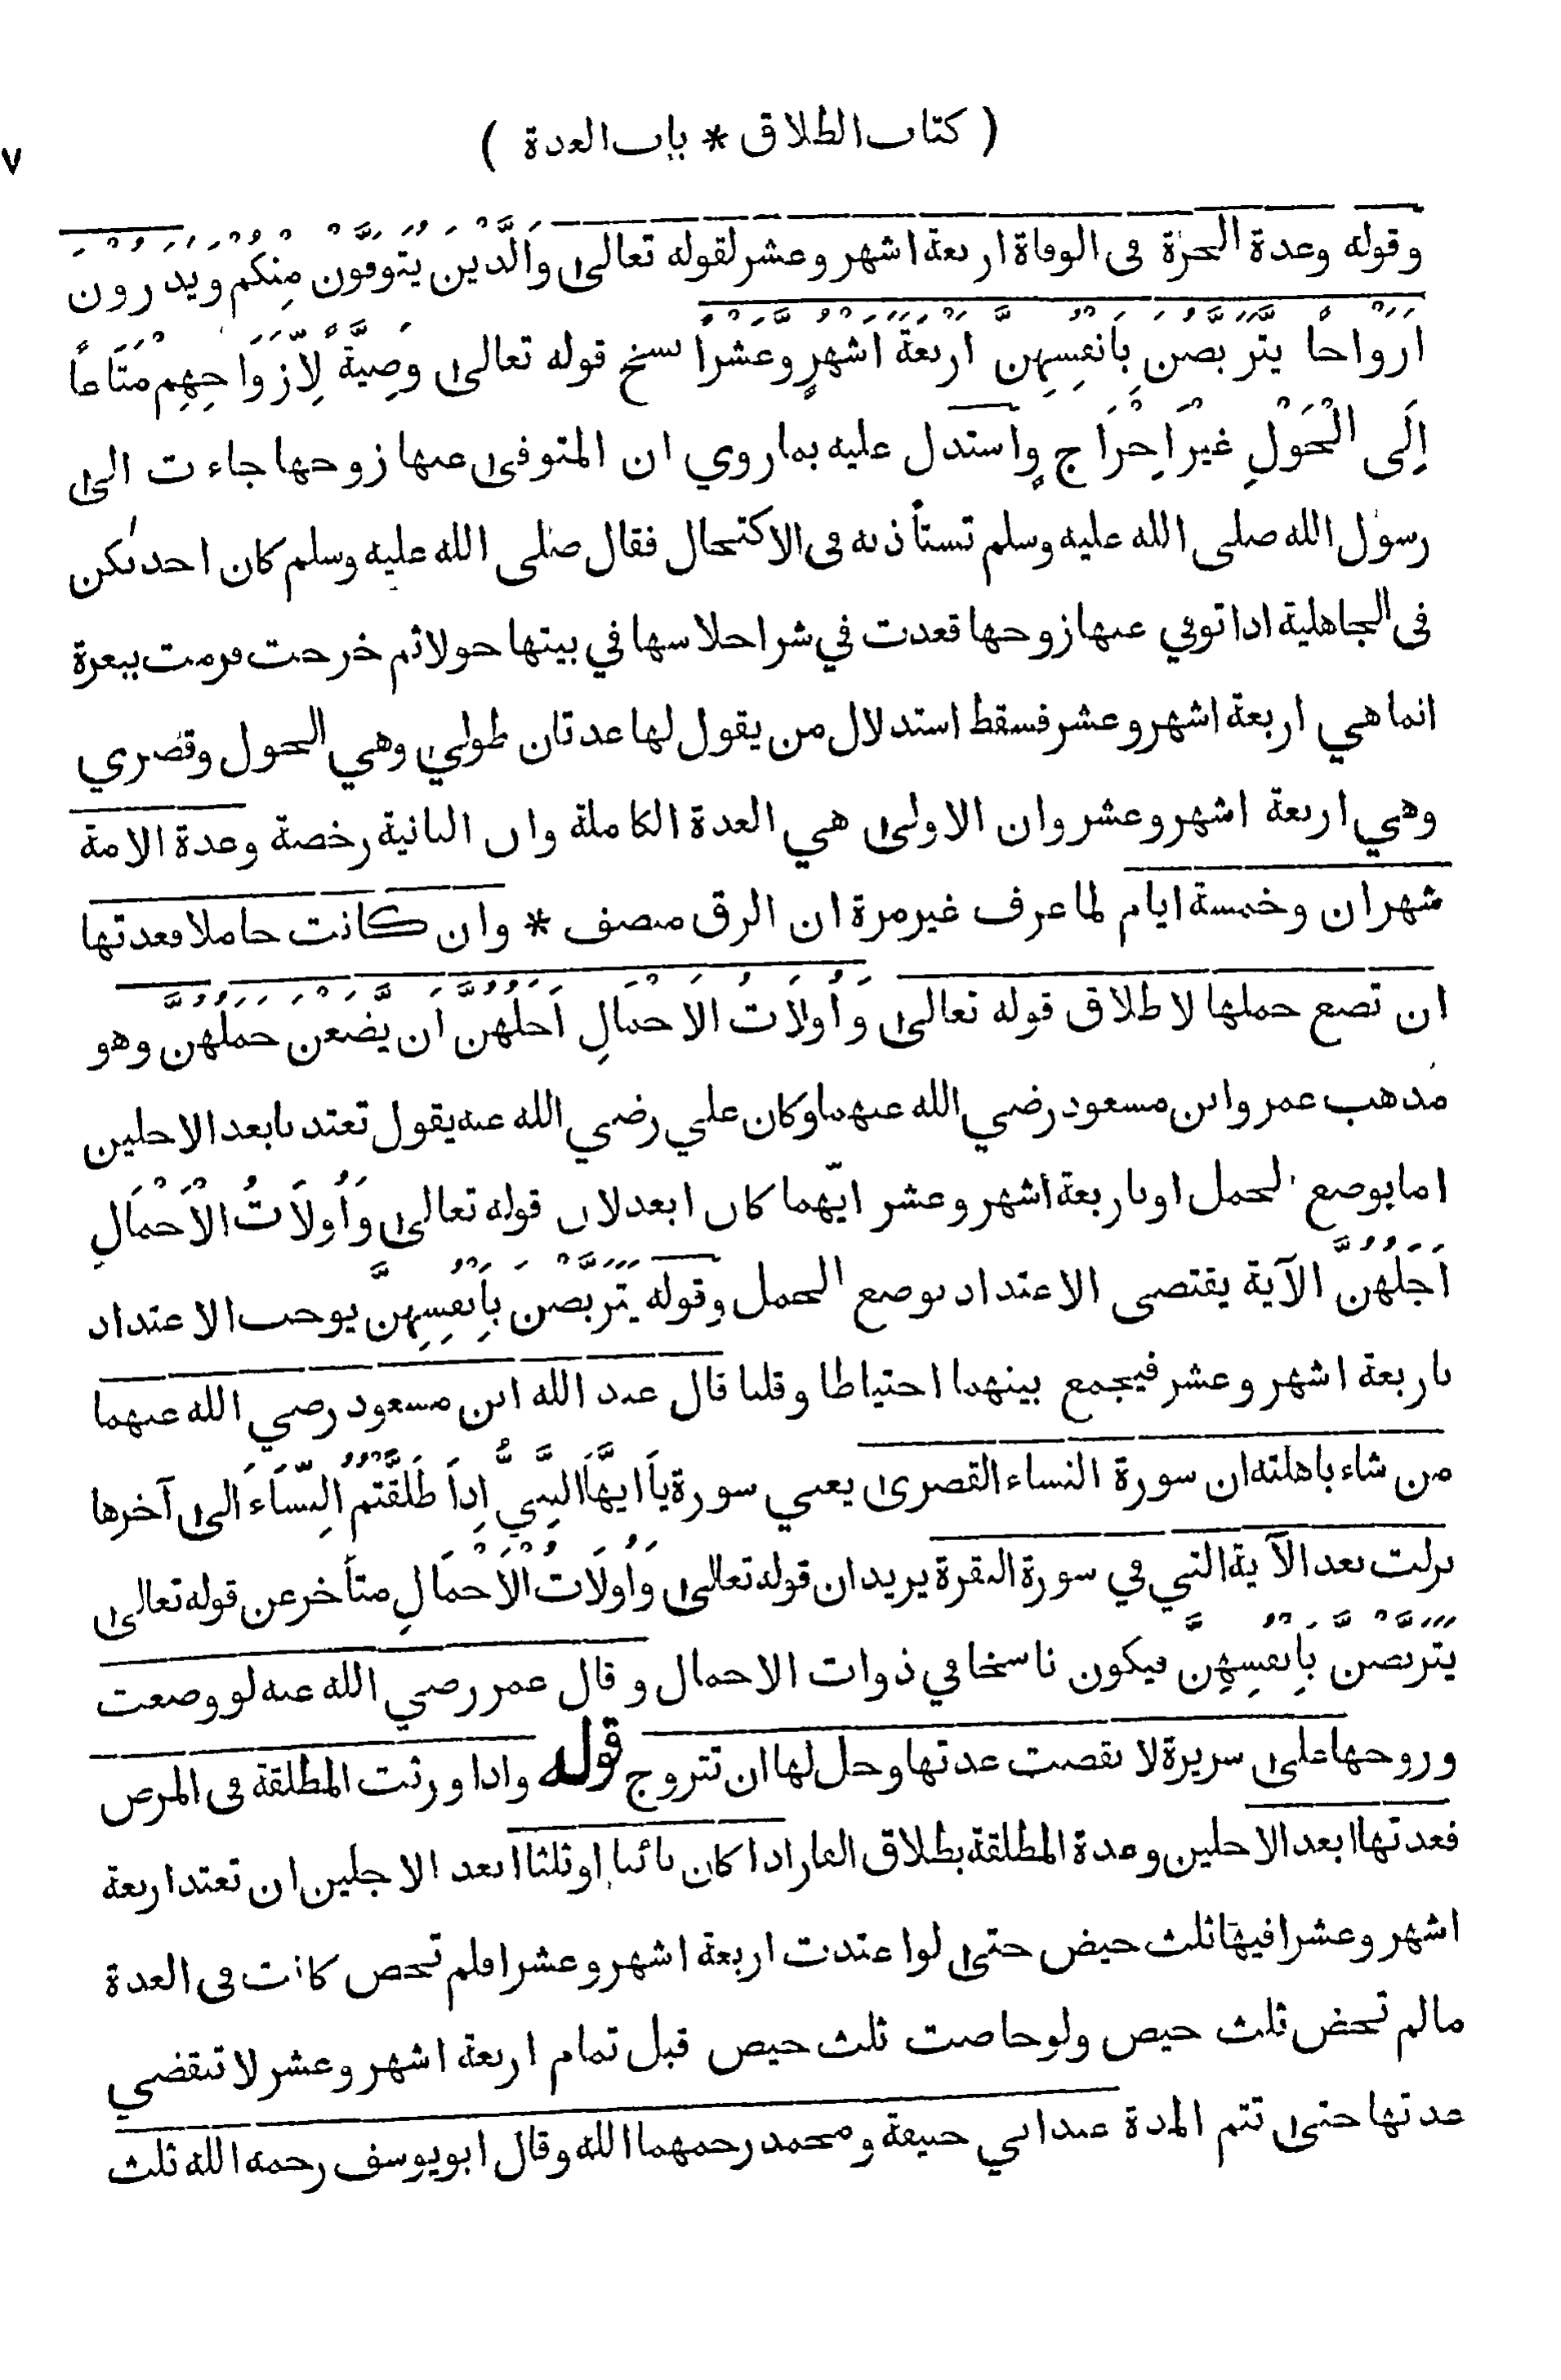 ( كتاب الطلاق * باب العدة )
٧
وقوله وعدة الحرة في الوفاة اربعة اشهر وعشر لقوله تعالى وَالَّذِيْنَ يُتَوَفَّوْنَ مِنْكُمْ وَيَذَرُوْنَ
اَزْوَاجًا يَّتَرَبَّصْنَ بِاَنْفُسِهِنَّ اَرْبَعَةَ اَشْهُرٍ وَّعَشْرًا نسخ قوله تعالى وَصِيَّةً لِاَزْوَاجِهِمْ مَتَاعًا
اِلَى الْحَوْلِ غَيْرَ اِخْرَاجٍ واستدل عليه بما روي ان المتوفى عنها زوجها جاءت الى
رسول الله صلى الله عليه وسلم تستأذنه في الاكتحال فقال صلى الله عليه وسلم كان احدىكن
في الجاهلية اذا توفي عنها زوجها قعدت في شر احلاسها في بيتها حولا ثم خرجت فرمت ببعرة
انما هي اربعة اشهر وعشر فسقط استدلال من يقول لها عدتان طولى وهي الحول وقصرى
وهي اربعة اشهر وعشر وان الاولى هي العدة الكاملة وان الثانية رخصة وعدة الامة
شهران وخمسة ايام لما عرف غير مرة ان الرق منصف * وان كانت حاملا فعدتها
ان تضع حملها لاطلاق قوله تعالى وَاُولَاتُ الْاَحْمَالِ اَجَلُهُنَّ اَنْ يَّضَعْنَ حَمْلَهُنَّ وهو
مذهب عمر وابن مسعود رضي الله عنهما وكان علي رضي الله عنه يقول تعتد بابعد الاجلين
اما بوضع الحمل او باربعة اشهر وعشر ايّهما كان ابعد لان قوله تعالى وَاُولَاتُ الْاَحْمَالِ
اَجَلُهُنَّ الآية يقتضى الاعتداد بوضع الحمل وقوله يَتَرَبَّصْنَ بِاَنْفُسِهِنَّ يوجب الاعتداد
باربعة اشهر وعشر فيجمع بينهما احتياطا وقلنا قال عبد الله ابن مسعود رضي الله عنهما
من شاء باهلته ان سورة النساء القصرى يعني سورة يَا اَيُّهَا النَّبِيُّ اِذَا طَلَّقْتُمُ النِّسَاءَ الى آخرها
نزلت بعد الآية التي في سورة البقرة يريد ان قوله تعالى وَاُولَاتُ الْاَحْمَالِ متأخر عن قوله تعالى
يَتَرَبَّصْنَ بِاَنْفُسِهِنَّ فيكون ناسخا في ذوات الاحمال وقال عمر رضي الله عنه لو وضعت
وزوجها على سريره لا نقضت عدتها وحل لها ان تتزوج قوله واذا ورثت المطلقة في المرض
فعدتها ابعد الاجلين وعدة المطلقة بطلاق الفار اذا كان بائنا او ثلثا ابعد الاجلين ان تعتد اربعة
اشهر وعشرا فيها ثلث حيض حتى لو اعتدت اربعة اشهر وعشرا فلم تحض كانت في العدة
مالم تحض ثلث حيض ولو حاضت ثلث حيض قبل تمام اربعة اشهر وعشر لا تنقضي
عدتها حتى تتم المدة عند ابي حنيفة ومحمد رحمهما الله وقال ابو يوسف رحمه الله ثلث